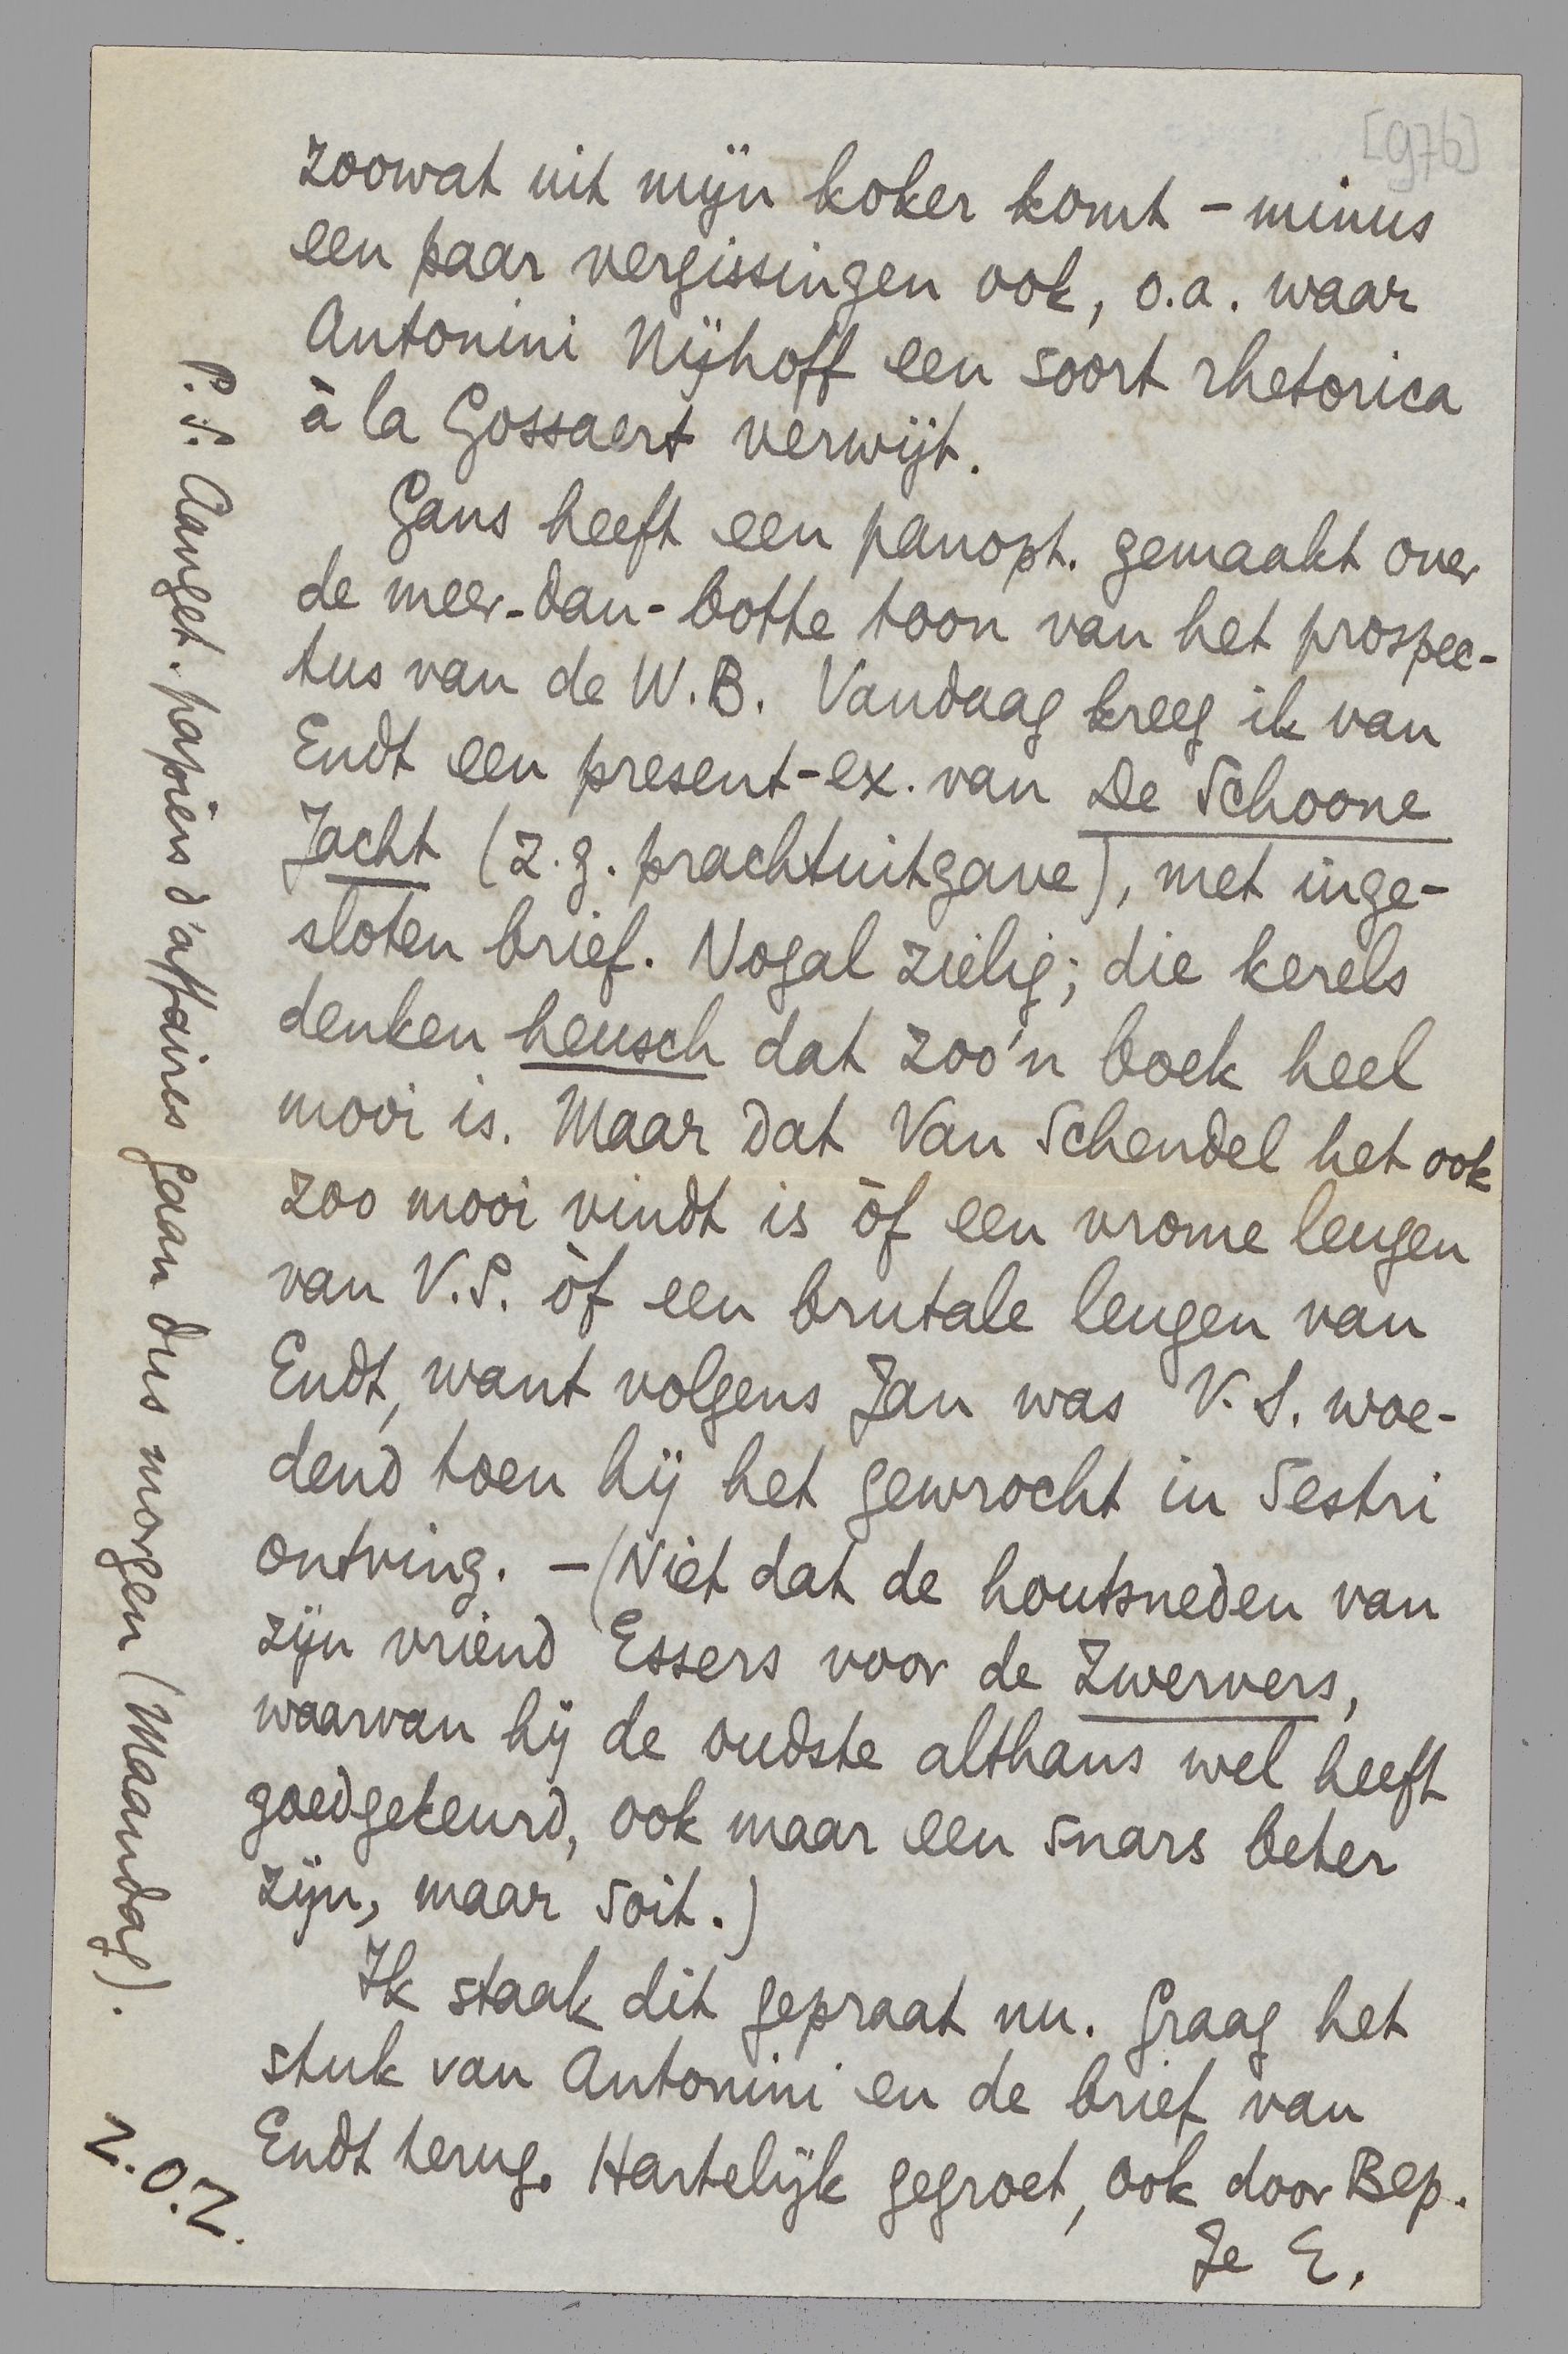 [976]
zoowat uit mijn koker komt – minus
een paar vergissingen ook, o.a. waar
Antonini Nijhoff een soort rhetorica
à la Gossaert verwijt.
Gans heeft een panopt. gemaakt over
de meer-dan-botte toon van het prospec-
tus van de W.B. Vandaag kreeg ik van
Endt een present-ex. van De Schoone
Jacht (z.g. prachtuitgave), met inge-
sloten brief. Nogal zielig; die kerels
denken heusch dat zoo'n boek heel
mooi is. Maar dat Van Schendel het ook
zoo mooi vindt is òf een vrome leugen
van V.S. òf een brutale leugen van
Endt, want volgens Jan was V.S. woe-
dend toen hij het gewrocht in Sestri
ontving. – (Niet dat de houtsneden van
zijn vriend Essers voor de Zwervers,
waarvan hij de oudste althans wel heeft
goedgekeurd, ook maar een snars beter
zijn, maar soit.)
Ik staak dit gepraat nu. Graag het
stuk van Antonini en de brief van
Endt terug. Hartelijk gegroet, ook door Bep.
Je E.
P.S. Aanget. papiers d'affaires gaan dus morgen (Maandag).
Z.O.Z.